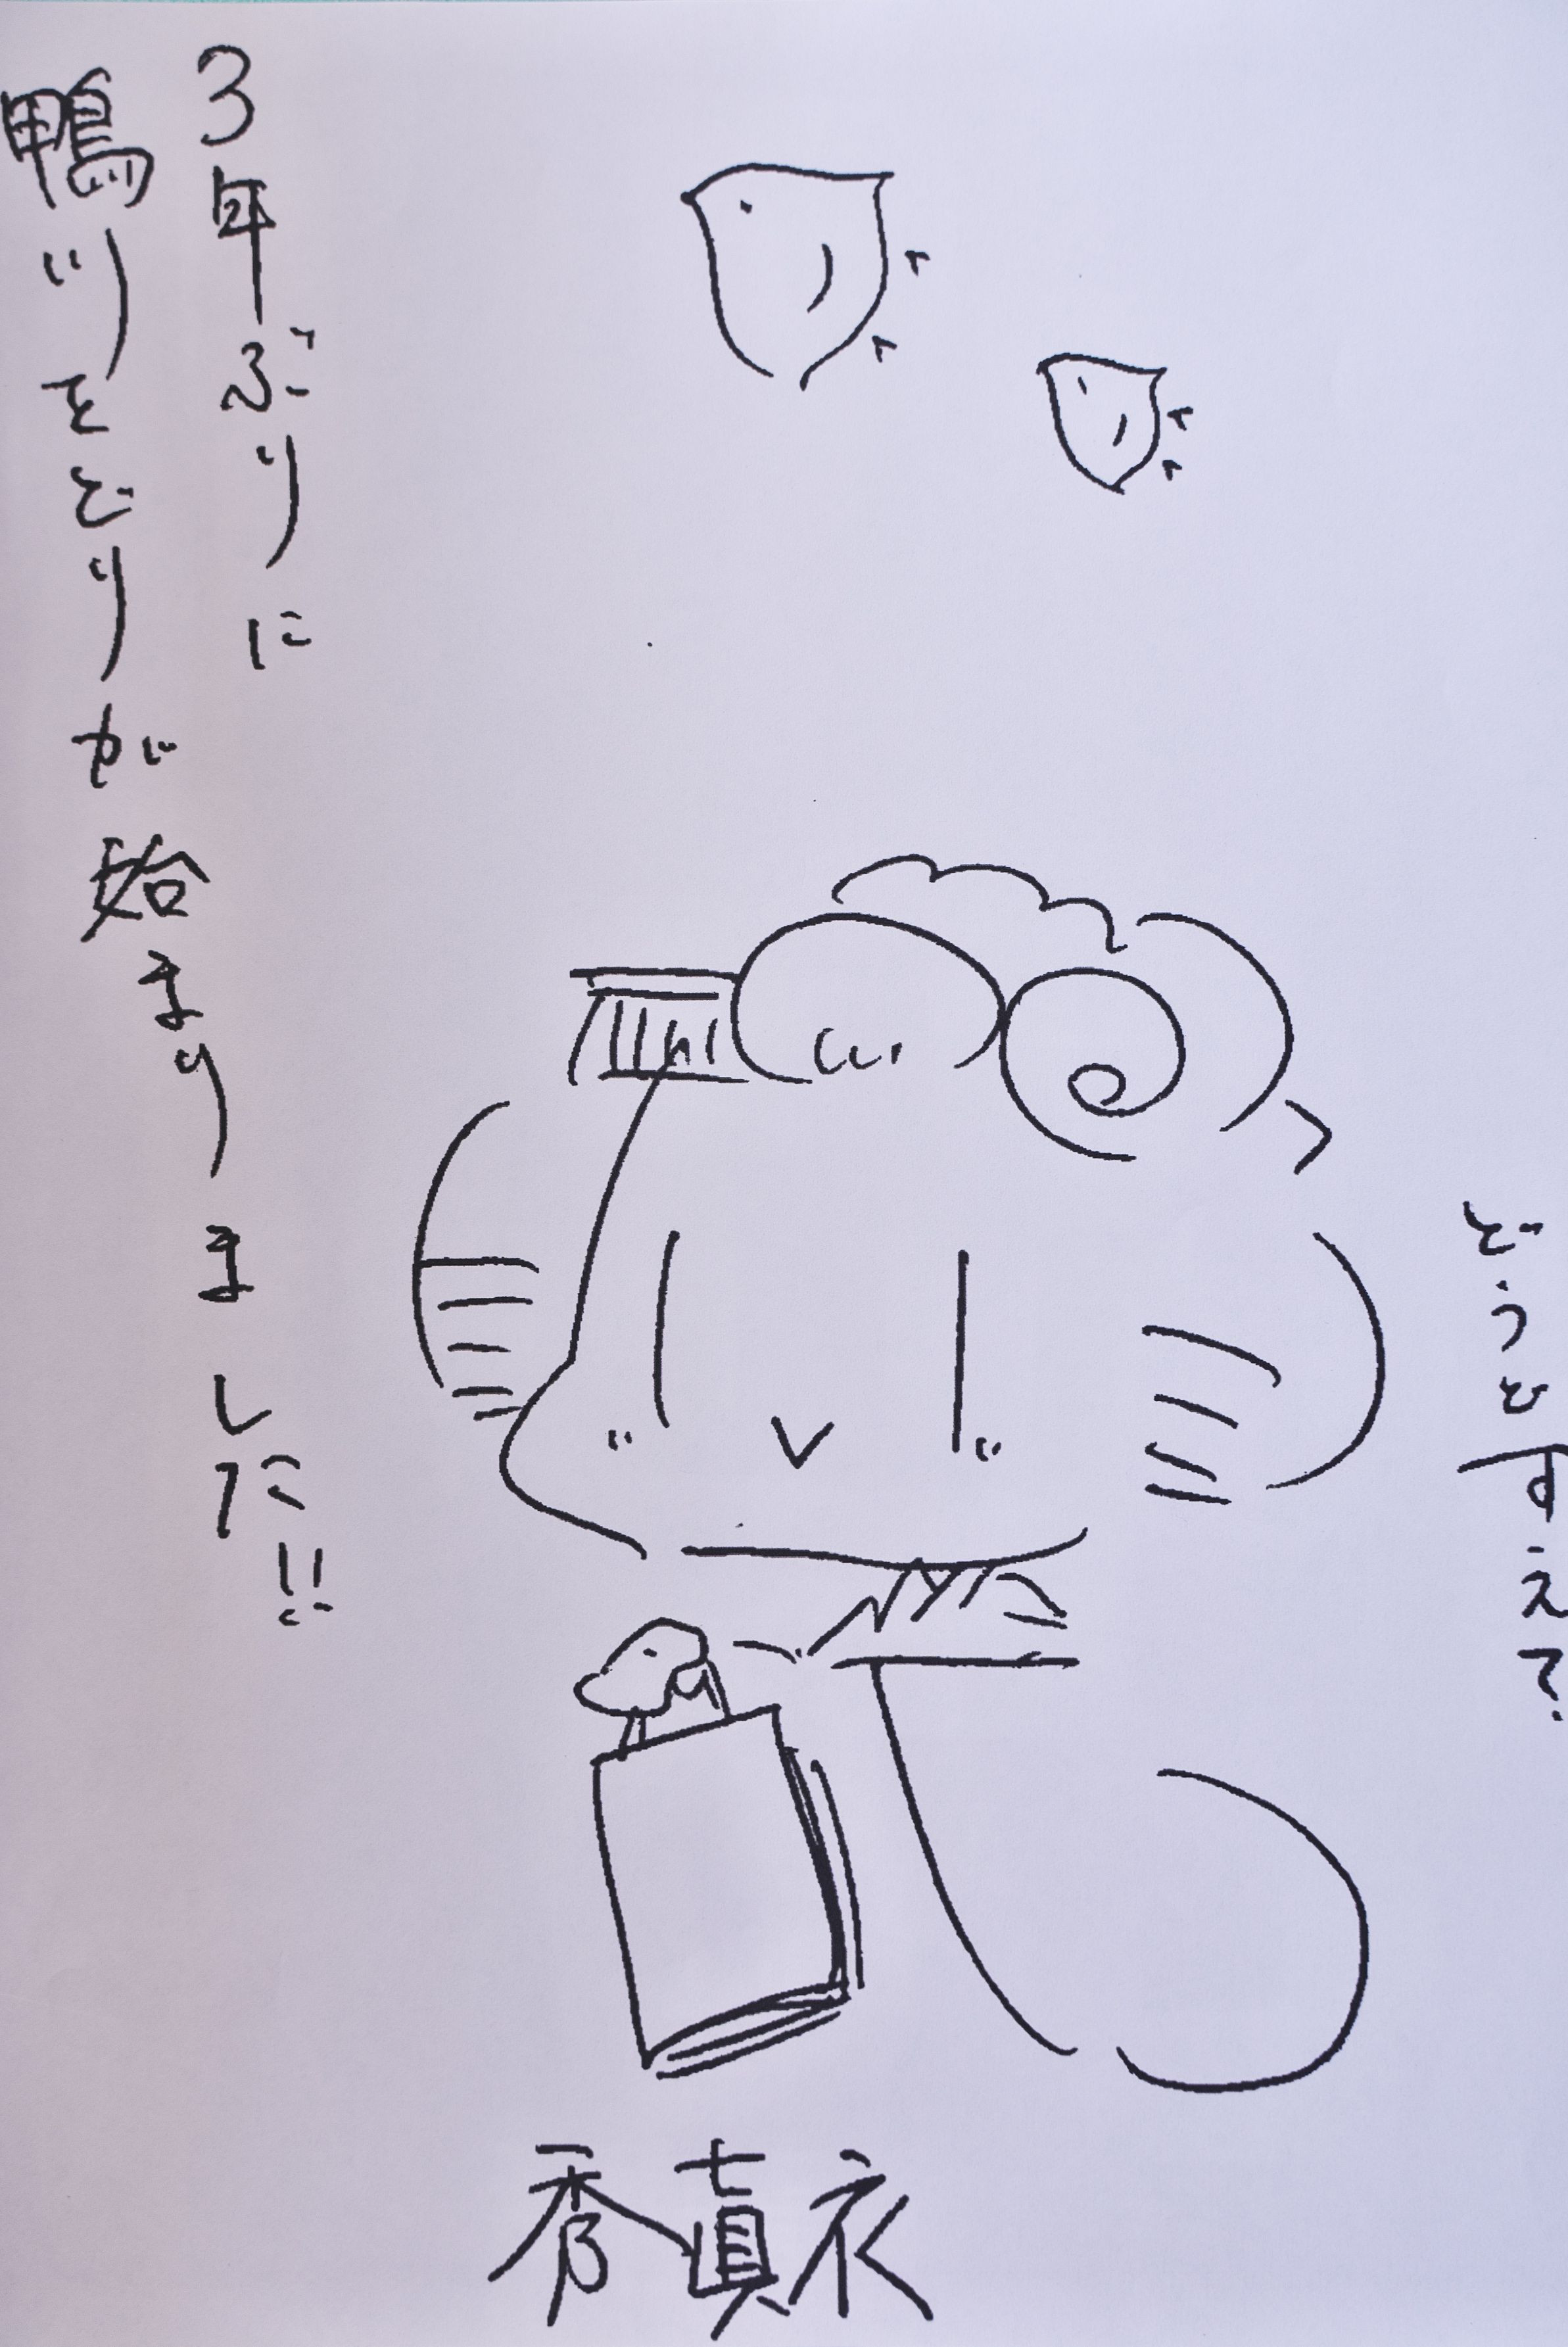 3年ぶりに
鴨川をどりが始まりました!!
どうどすえ?
秀眞衣